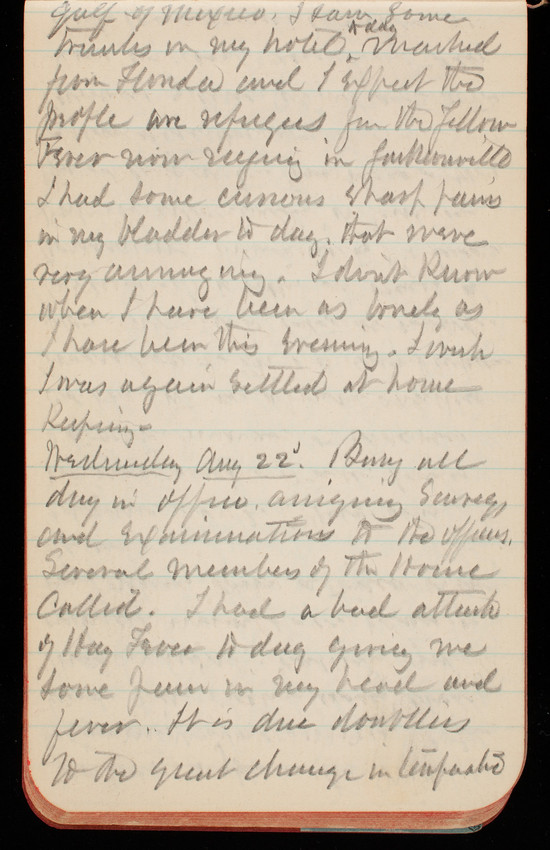 Gulf of Mexico. I saw some
trunks in my hotel to day marked
from Florida and I expect the
people are refugees from the Yellow
Fever now raging in Jacksonville
I had some curious sharp pains
in my bladder to day. that were
very annoying. I don't know
when I have been as lonely as
I have been this evening. I wish
I was again settled at home
Keeping-
Wednesday Aug 22d. Busy all
day in office. assigning Surveys
and Examinations to the officers.
Several members of the House
Called. I had a bad attack
of Hay Fever to day giving me
some pain in my head and
fever. It is due doubtless
to the great change in